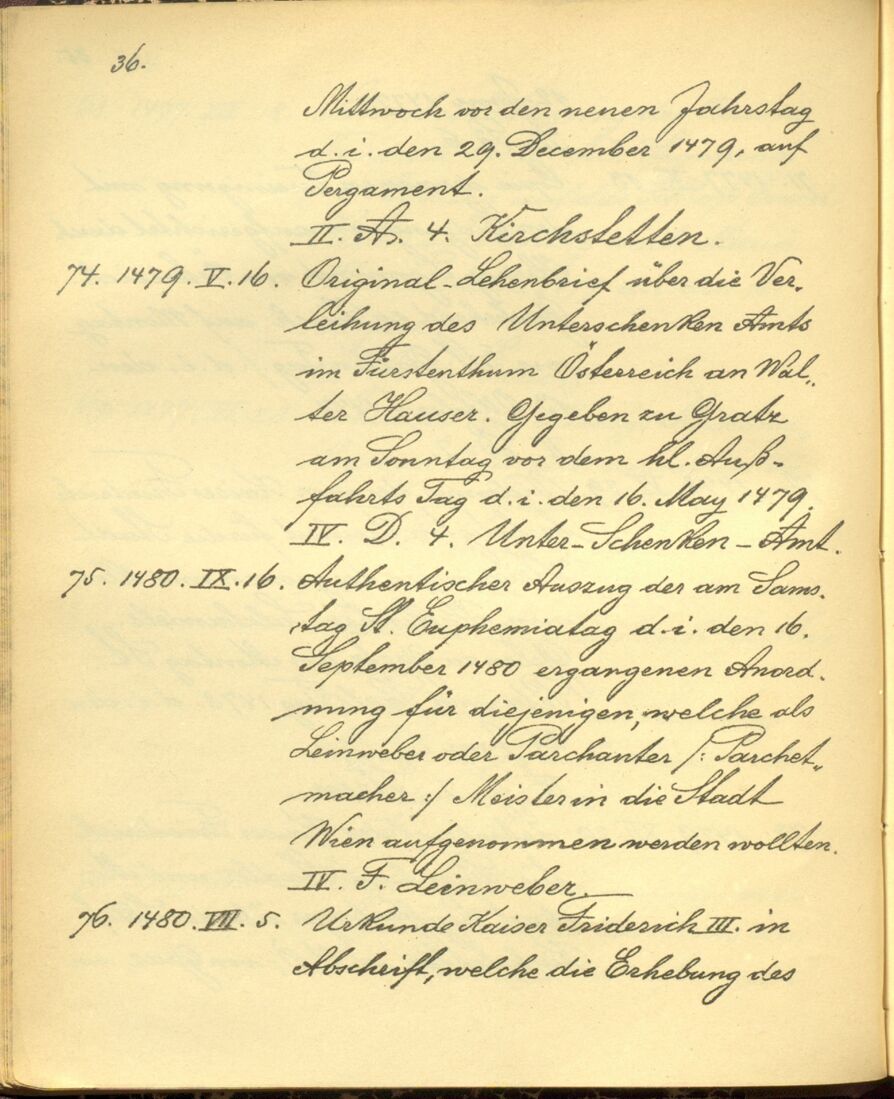 36.
Mittwoch vor den neuen Jahrstag
d. i. den 29. December 1479, auf
Pergament.
II. A. 4. Kirchstetten.
74. 1479. V. 16. Original-Lehenbrief über die Ver-
leihung des Unterschenken Amts
im Fürstenthum Österreich an Wal„
ter Hauser. Gegeben zu Gratz
am Sonntag vor dem hl. Auß-
fahrts Tag d. i. den 16. May 1479.
IV. D. 4. Unter-Schenken-Amt.
75. 1480. IX. 16. Authentischer Auszug der am Sams-
tag St. Euphemiatag d. i. den 16.
September 1480 ergangenen Anord-
nung für diejenigen, welche als
Leinweber oder Parchanter /: Parchet„
macher :/ Meister in die Stadt
Wien aufgenommen werden wollten.
IV. F. Leinweber.
76. 1480. VIII. 5. Urkunde Kaiser Friderich III. in
Abschrift, welche die Erhebung des